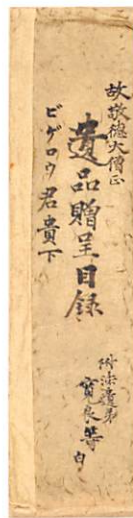 故敬德大僧正
遺品贈呈目録
ビゲロウ君貴下
附法遺弟
寛良等
白